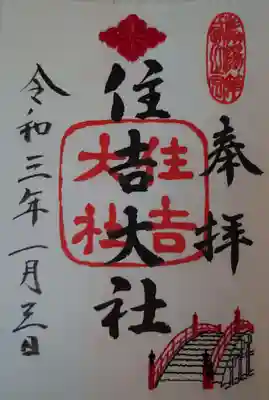 奉拝
住吉大社
住吉
大社
令和三年一月三日